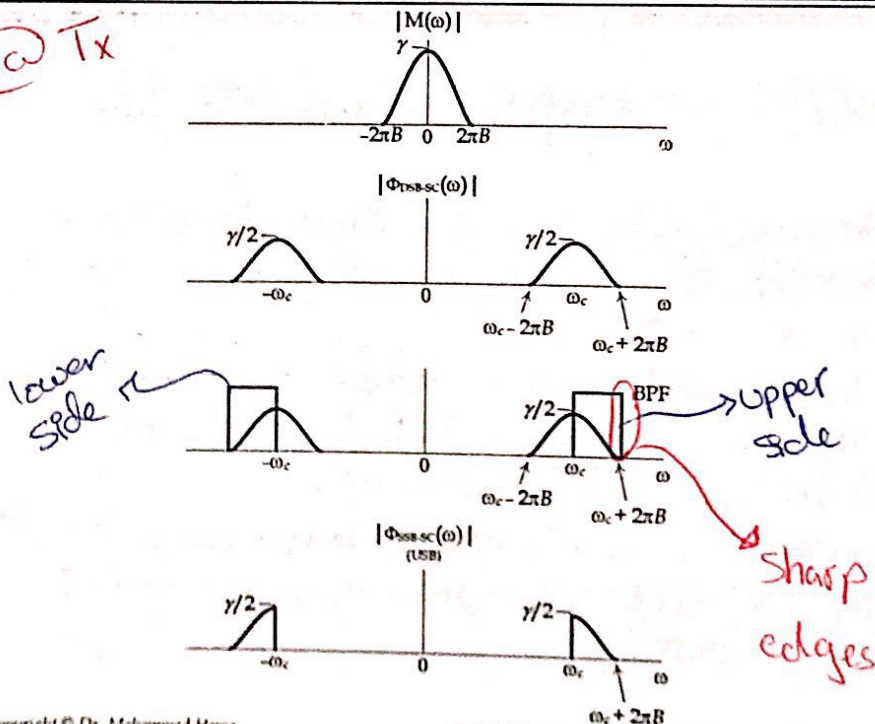 @ Tx
|M(ω)|
γ
-2πB 0 2πB ω
|Φ_DSB-SC(ω)|
γ/2 γ/2
-ω_c 0 ω_c ω
ω_c - 2πB
ω_c + 2πB
lower
side
γ/2
BPF
upper
side
-ω_c 0 ω_c ω
ω_c - 2πB
ω_c + 2πB
sharp
edges
|Φ_SSB-SC(ω)|
(USB)
γ/2 γ/2
-ω_c 0 ω_c ω
ω_c + 2πB
Copyright © Dr. Mohammed